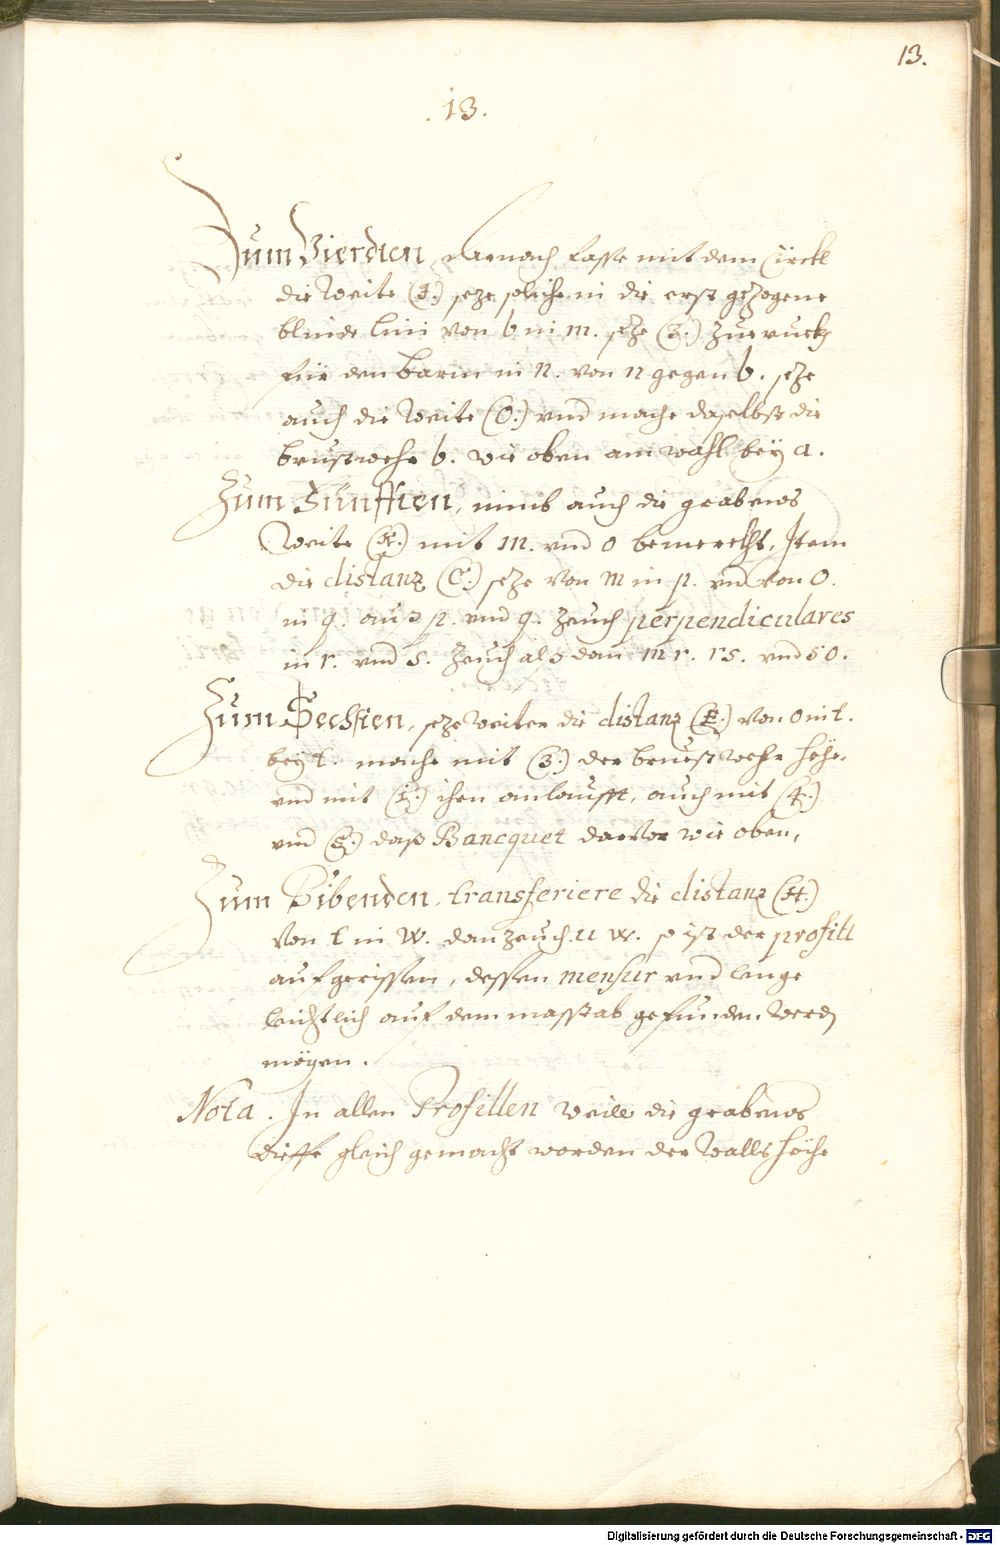 13.
. 13.
Zum Vierdten, darnach fasse mit dem Circkl
die Weite (I.) seze solche in die erst gezogene
blinde lini von b in m. seze (3.) zuruckh
für den barm in n. von n gegen b. seze
auch die Weite (O:) vnd mache daselbst die
brustwehr b. wie oben am wahl bey a.
Zum Fünfften, nimb auch die grabens
Weite (K.) mit m. vnd o bemerckht, Item
die distanz (C:) seze von m in p. vnd von o.
in q. aus p. vnd q. zeuch perpendiculares
in r. vnd s. zeuch als dan m r. r s. vnd s o.
Zum Sechsten, seze weiter die distanz (E.) von o in t.
bey t. mache mit (3.) der brustwehr höhe,
vnd mit (i.) ihen anlaufft, auch mit (4.)
vnd (5.) daß Bancquet darvor wie oben,
Zum Sibenden, transferiere die distanz (H.)
von t in w. dan zeuch u w. so ist der profill
aufgerissen, dessen mensur vnd lenge
leichtlich auf dem masstab gefunden werdn
mögen.
Nota. In allen Profillen weill die grabens
dieffe gleich gemacht worden der Walls höche
Digitalisierung gefördert durch die Deutsche Forschungsgemeinschaft - DFG